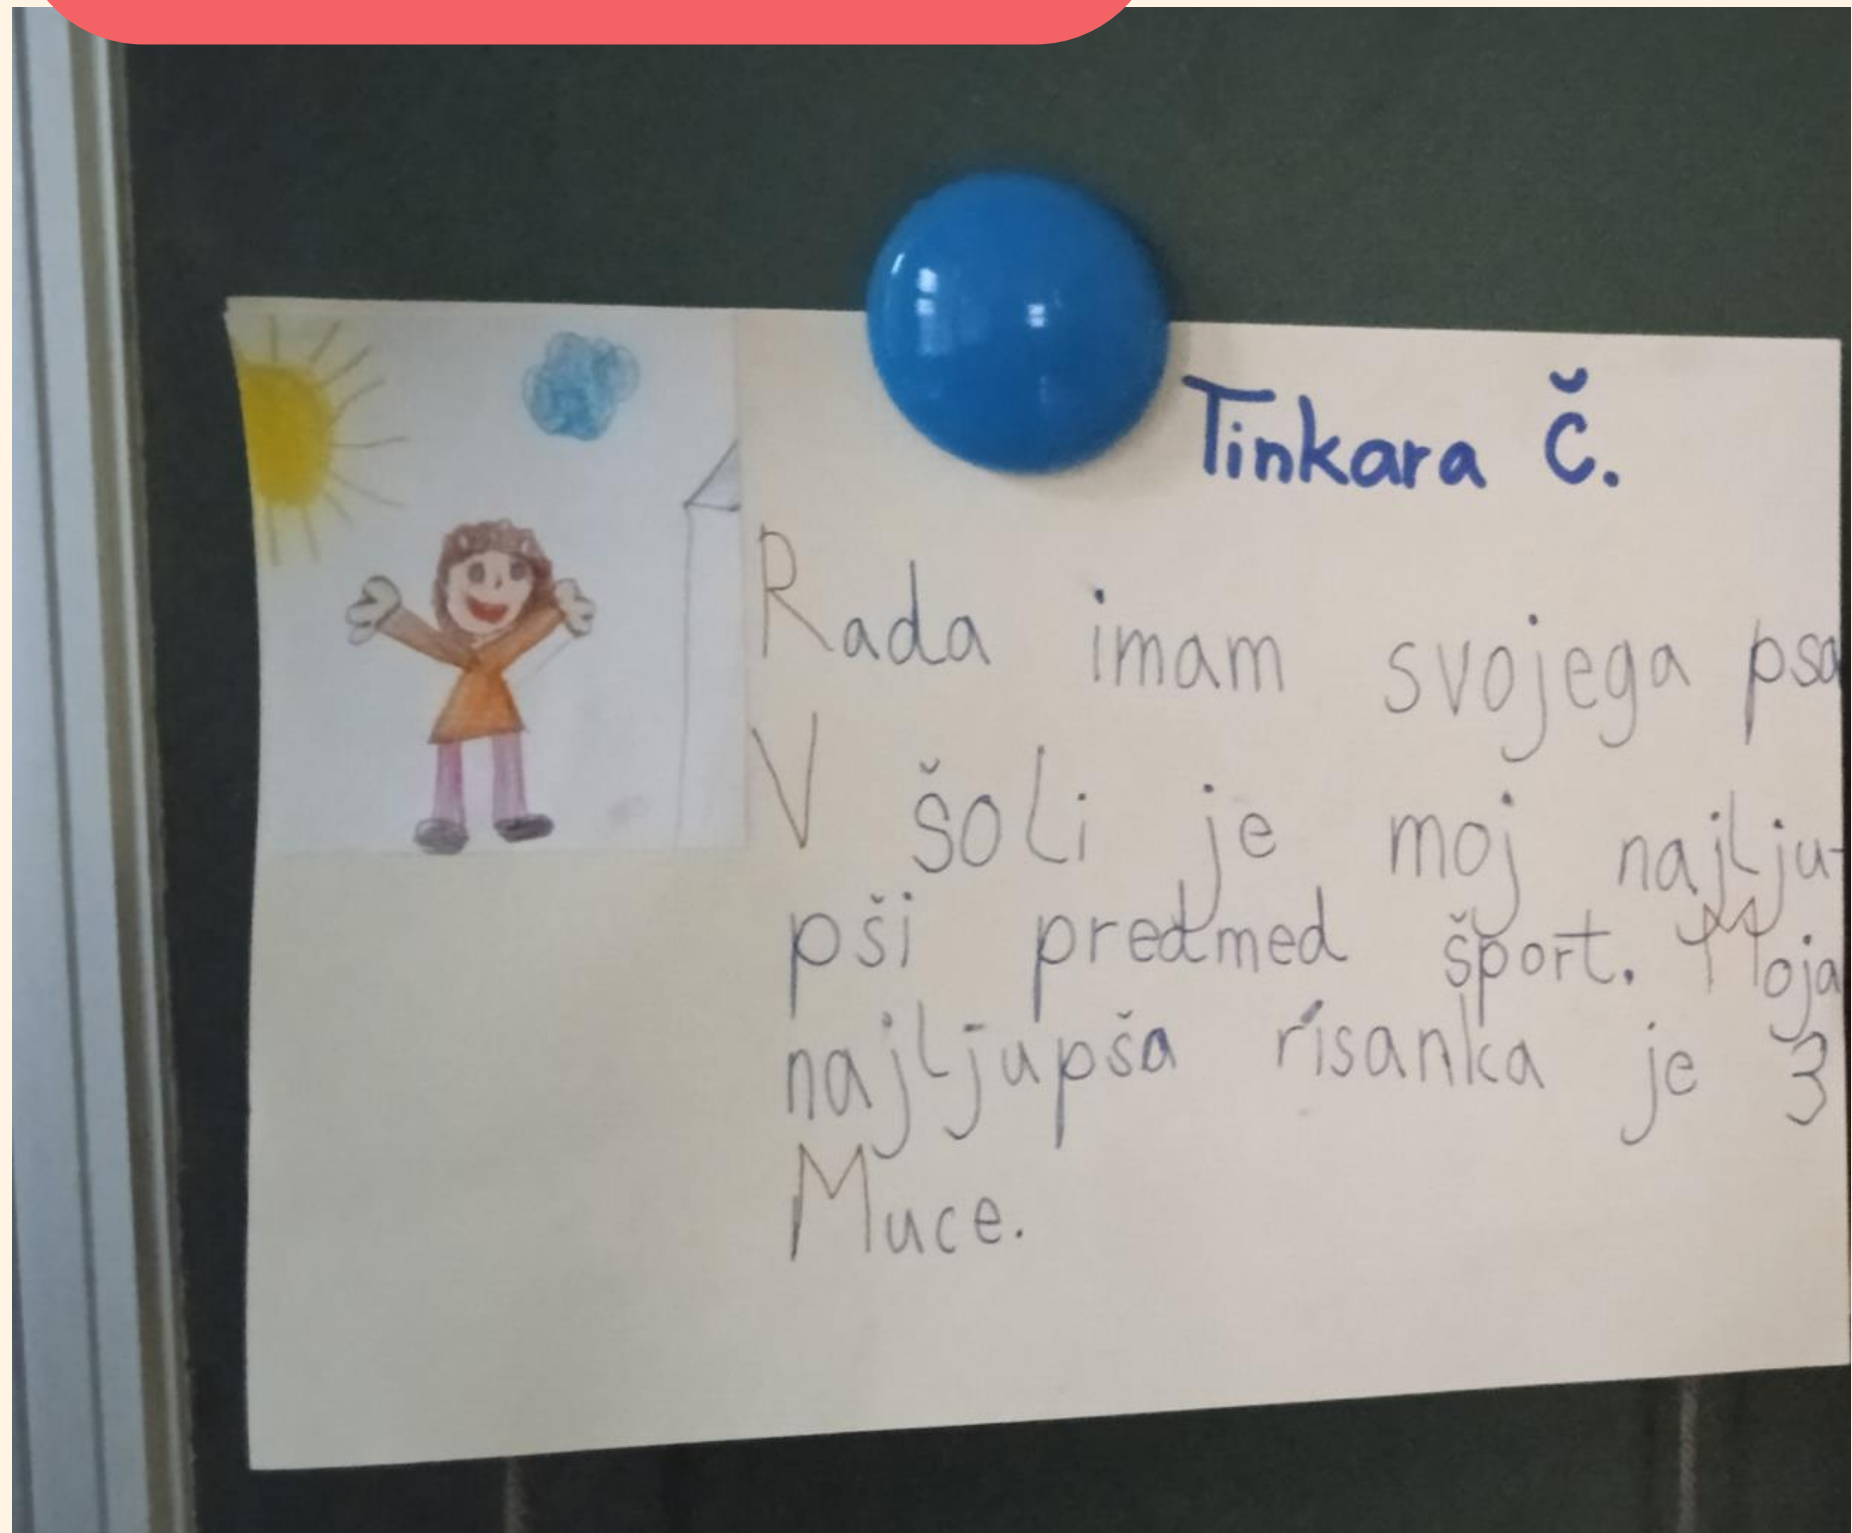 Tinkara Č.
Rada imam svojega psa
V šoli je moj najlju-
pši predmed šport. Moja
najljupša risanka je 3
Muce.